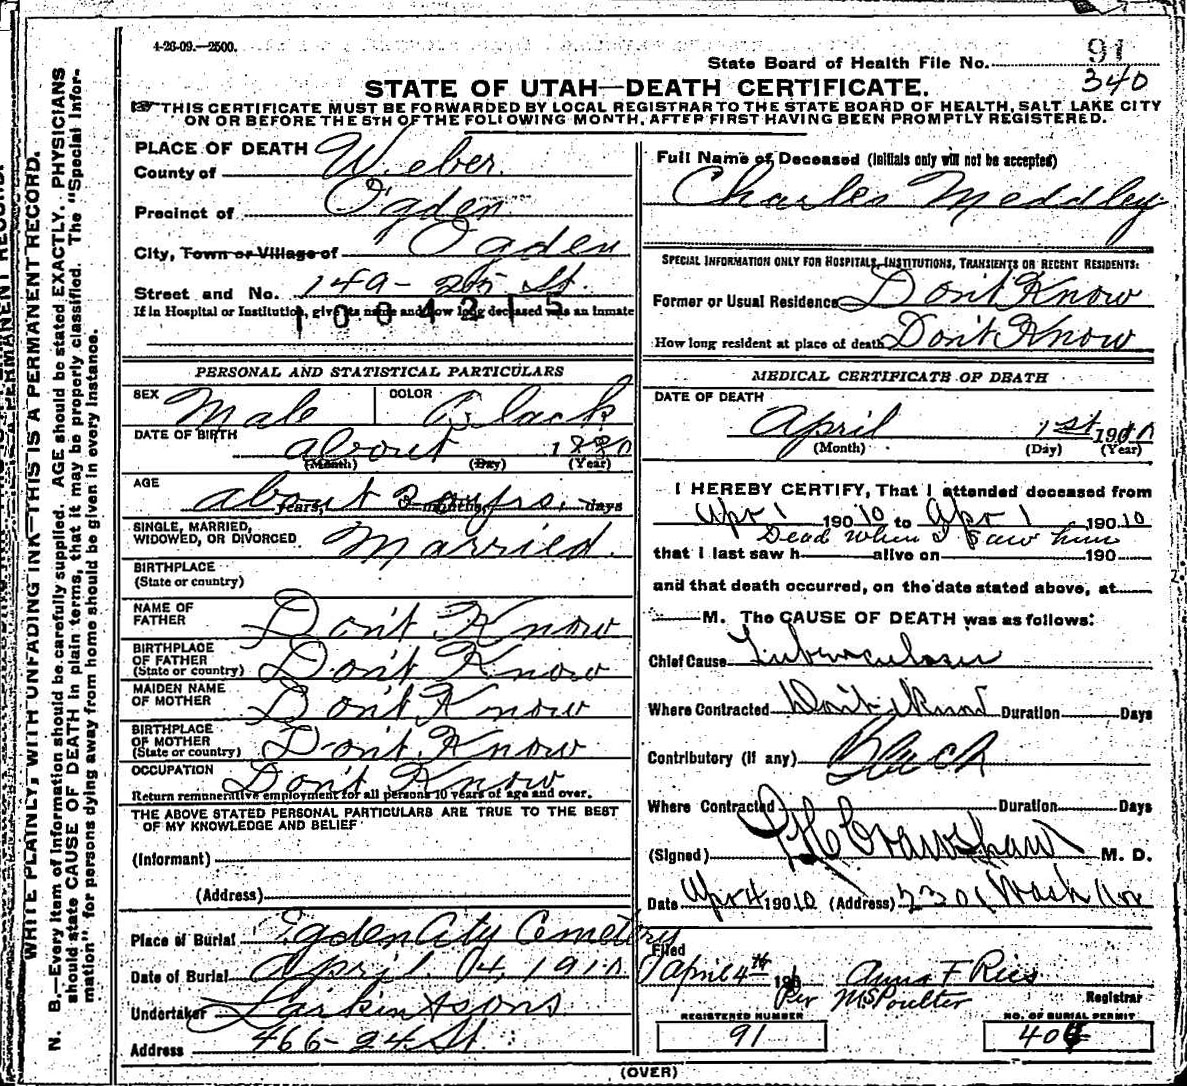 4-26-09.—2500.
State Board of Health File No. 91
340
STATE OF UTAH—DEATH CERTIFICATE.
THIS CERTIFICATE MUST BE FORWARDED BY LOCAL REGISTRAR TO THE STATE BOARD OF HEALTH, SALT LAKE CITY
ON OR BEFORE THE 5TH OF THE FOLLOWING MONTH, AFTER FIRST HAVING BEEN PROMPTLY REGISTERED.
PLACE OF DEATH
County of Weber.
Precinct of Ogden
City, Town or Village of Ogden
Street and No. 149- 25 St.
If in Hospital or Institution, give its name and how long deceased was an inmate
1004215
PERSONAL AND STATISTICAL PARTICULARS
SEX Male COLOR Black
DATE OF BIRTH about 1880
(Month) (Day) (Year)
AGE
about 30 yrs.
years, months, days
SINGLE, MARRIED,
WIDOWED, OR DIVORCED Married.
BIRTHPLACE
(State or country)
NAME OF
FATHER Don't Know
BIRTHPLACE
OF FATHER
(State or country) Don't Know
MAIDEN NAME
OF MOTHER Don't Know
BIRTHPLACE
OF MOTHER
(State or country) Don't Know
OCCUPATION Don't Know
Return remunerative employment for all persons 10 years of age and over.
THE ABOVE STATED PERSONAL PARTICULARS ARE TRUE TO THE BEST
OF MY KNOWLEDGE AND BELIEF
(Informant)
(Address)
Place of Burial Ogden City Cemetery
Date of Burial April 04, 1910
Undertaker Larkin & Sons
Address 466-24 St.
Full Name of Deceased (Initials only will not be accepted)
Charles Meddley
SPECIAL INFORMATION ONLY FOR HOSPITALS, INSTITUTIONS, TRANSIENTS OR RECENT RESIDENTS:
Former or Usual Residence Don't Know
How long resident at place of death Don't Know
MEDICAL CERTIFICATE OF DEATH
DATE OF DEATH
April 1st 1910
(Month) (Day) (Year)
I HEREBY CERTIFY, That I attended deceased from
Apr 1 190 10 to Apr 1 190 10
Dead when I saw him
that I last saw h alive on 190
and that death occurred, on the date stated above, at
M. The CAUSE OF DEATH was as follows:
Chief Cause Tuberculosis
Where Contracted Don't Know Duration Days
Contributory (if any) Black
Where Contracted Duration Days
(Signed) Crawshaw M. D.
Date Apr 4 190 10 (Address) 2301 Wash Ave
Filed
April 4th 190 Anna F Ries
Per M S Poulter Registrar
REGISTERED NUMBER
91
NO. OF BURIAL PERMIT
404
(OVER)
WRITE PLAINLY, WITH UNFADING INK—THIS IS A PERMANENT RECORD.
N. B.—Every item of information should be carefully supplied. AGE should be stated EXACTLY. PHYSICIANS
should state CAUSE OF DEATH in plain terms, that it may be properly classified. The "Special Infor-
mation" for persons dying away from home should be given in every instance.